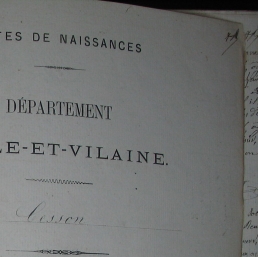 TES DE NAISSANCES
DÉPARTEMENT
LE-ET-VILAINE.
Cesson